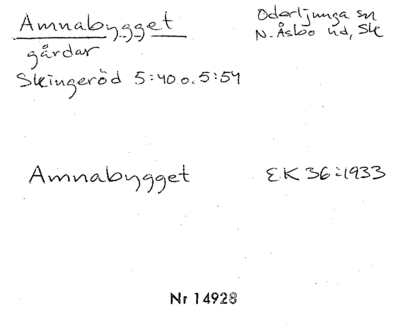 Amnabygget
Oderljunga sn
N. Åsbo hd, Sk
gårdar
Skingeröd 5:40 o. 5:54
Amnabygget
EK 36:1933
Nr 14928